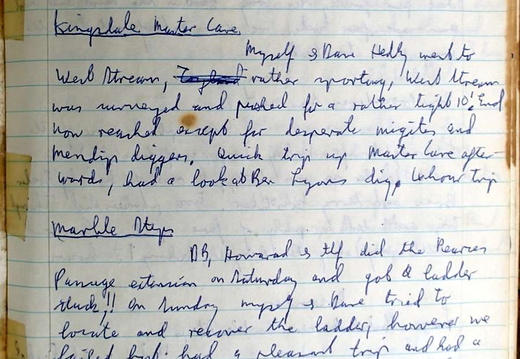 Kingsdale Master Cave
Myself & Dave Hedly went to
West Stream, rather sporting, West Stream
was surveyed and pushed for a rather tight 10'. End
now reached except for desperate migites and
mendip diggers. Quick trip up Master Cave after-
wards, had a look at Ben Lyons dig, 4 hour trip
Marble Steps
DB, Howard & Elf did the Pearces
Passage extension on Saturday and got a ladder
stuck!! On Sunday myself & Dave tried to
locate and recover the ladder, however we
failed but had a pleasant trip and had a